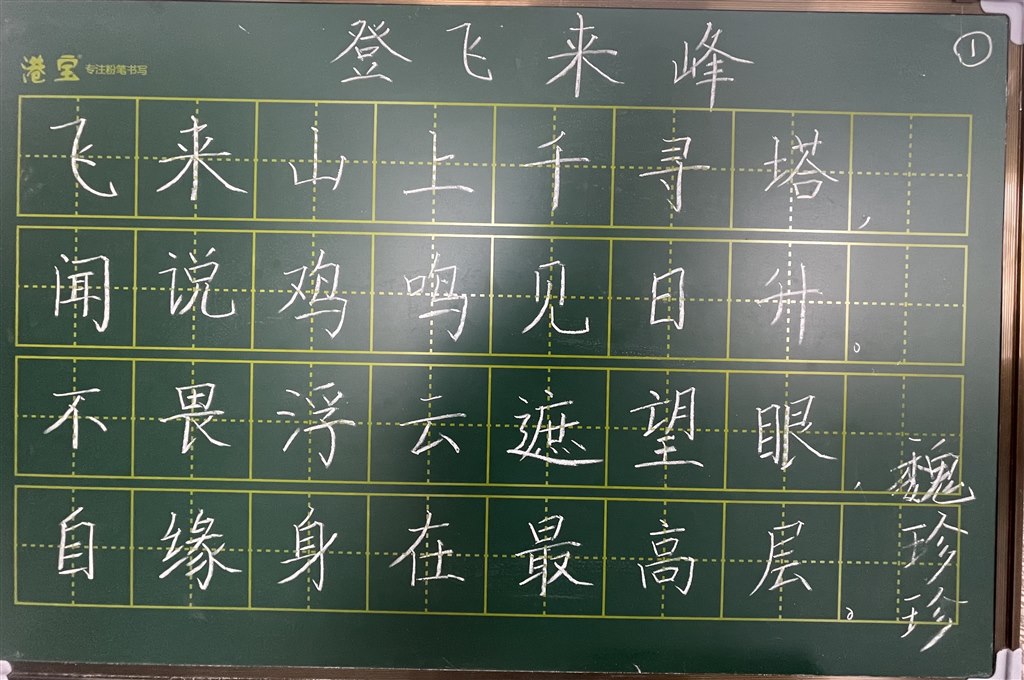 登飞来峰
①
港宝 专注粉笔书写
飞来山上千寻塔，
闻说鸡鸣见日升。
不畏浮云遮望眼，
自缘身在最高层。
魏珍珍